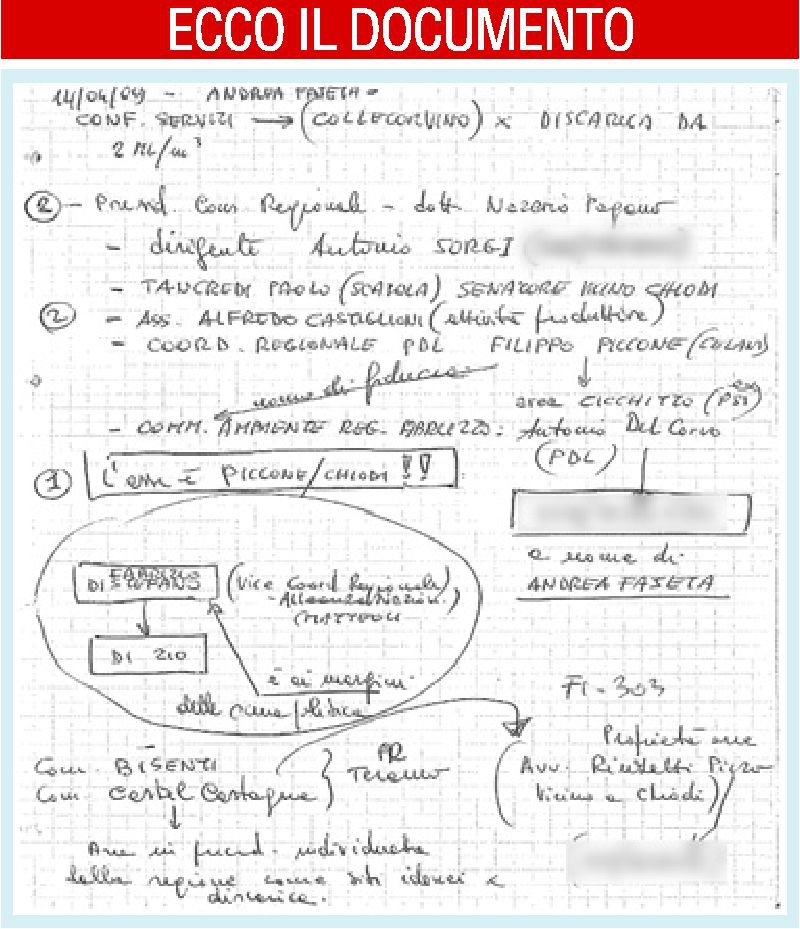 ECCO IL DOCUMENTO
14/04/09 - ANDREA FAJETA -
CONF. SERVIZI → (COLLECORVINO) x DISCARICA DA
2 ML/m³
② - Presid. Cons. Regionale - dott. Nazario Pagano
- dirigente Antonio SORGI
- TANCREDI PAOLO (SCAPOLA) SENATORE VICINO CHIODI
② - ASS. ALFREDO CASTIGLIONI (attività produttive)
- COORD. REGIONALE PDL FILIPPO PICCONE (CELANO)
uomo di fiducia
area CICCHITTO (ex PSI)
- COMM. AMBIENTE REG. ABRUZZO: Antonio Del Corvo
(PDL)
① L'asse è PICCONE/CHIODI !!
a nome di
ANDREA FAJETA
DI STEFANO FABRIZIO (Vice Coord Regionale)
- Alleanza Nazion.
(MATTEOLI
DI ZIO
è ai margini
della scena politica
FI-303
Com. BISENTI
Com. Castel Castagna } PR Teramo
(Proprietà area
Avv. Rintelli Pirro
Vicino a Chiodi)
Aree in preced. individuate
dalla regione come siti idonei a
discarica.